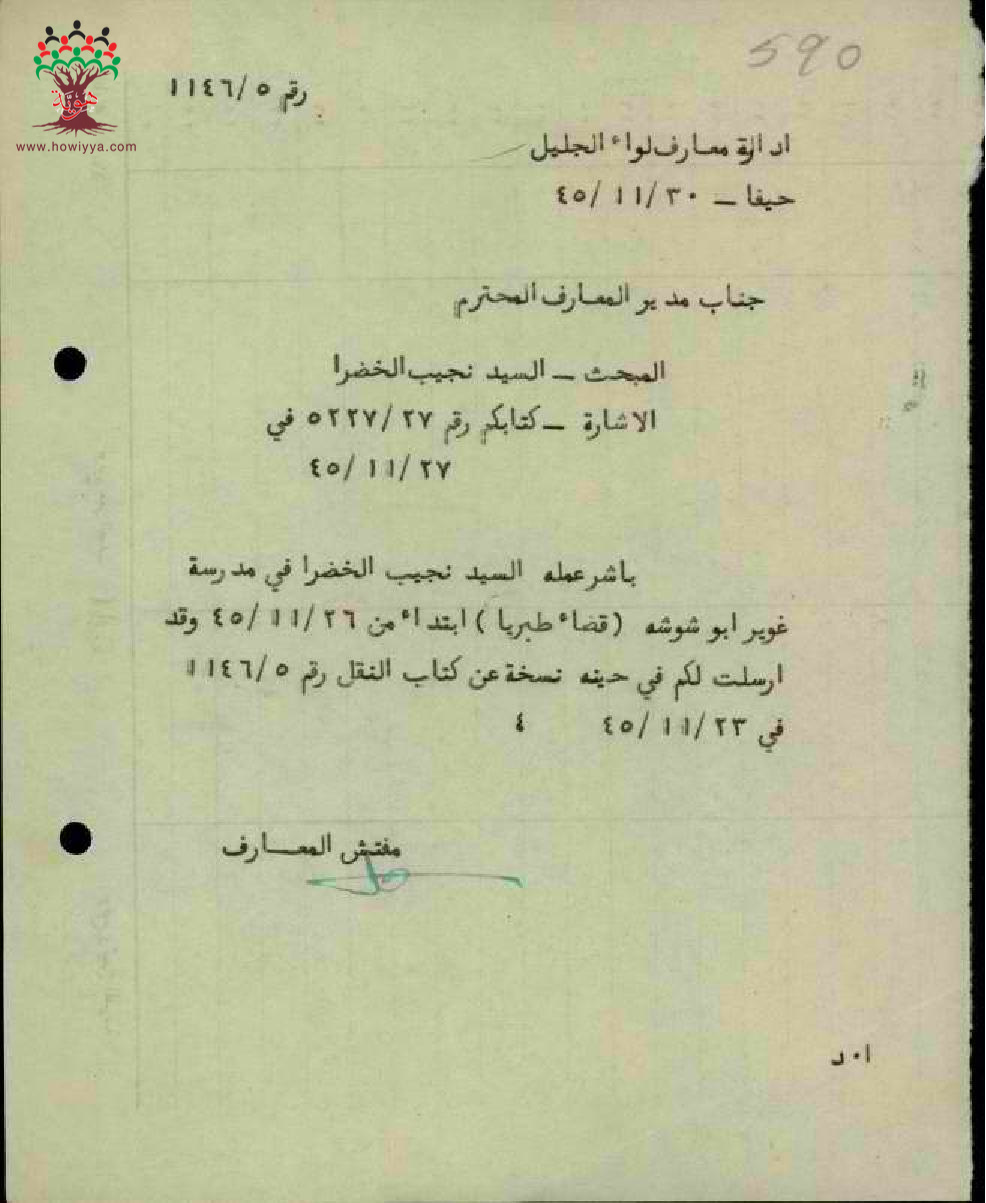 590
هوية
www.howiyya.com
رقم ٥/١١٤٦
ادارة معارف لواء الجليل
حيفا – ٣٠/١١/٤٥
جناب مدير المعارف المحترم
المبحث – السيد نجيب الخضرا
الاشارة – كتابكم رقم ٢٧/٥٢٢٧ في
٢٧/١١/٤٥
باشر عمله السيد نجيب الخضرا في مدرسة
غوير ابو شوشه (قضاء طبريا) ابتداء من ٢٦/١١/٤٥ وقد
ارسلت لكم في حينه نسخة عن كتاب النقل رقم ٥/١١٤٦
في ٢٣/١١/٤٥ ٤
مفتش المعــارف
ا٠د